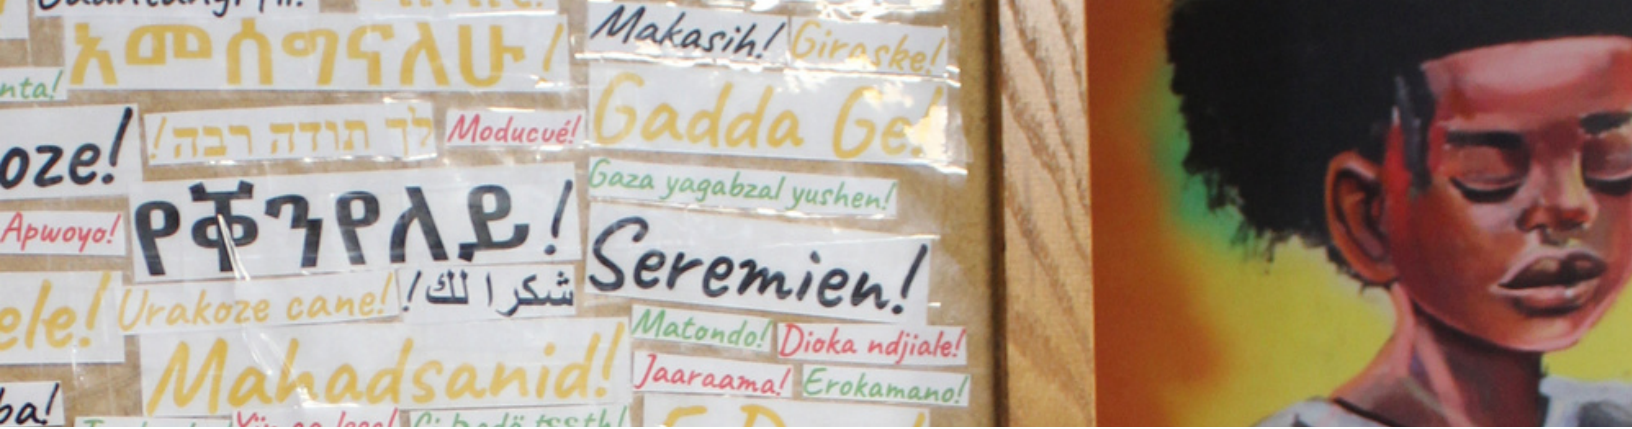 Makasih! Giraske!
አመሰግናለሁ!
nta!
Gadda Ge!
oze!
לך תודה רבה!
Moducué!
Gaza yagabzal yushen!
Apwoyo!
የቐንየለይ!
Seremien!
ele!
Urakoze cane!
شكرا لك!
Matondo! Dioka ndjiale!
Mahadsanid!
Jaaraama! Erokamano!
ba!